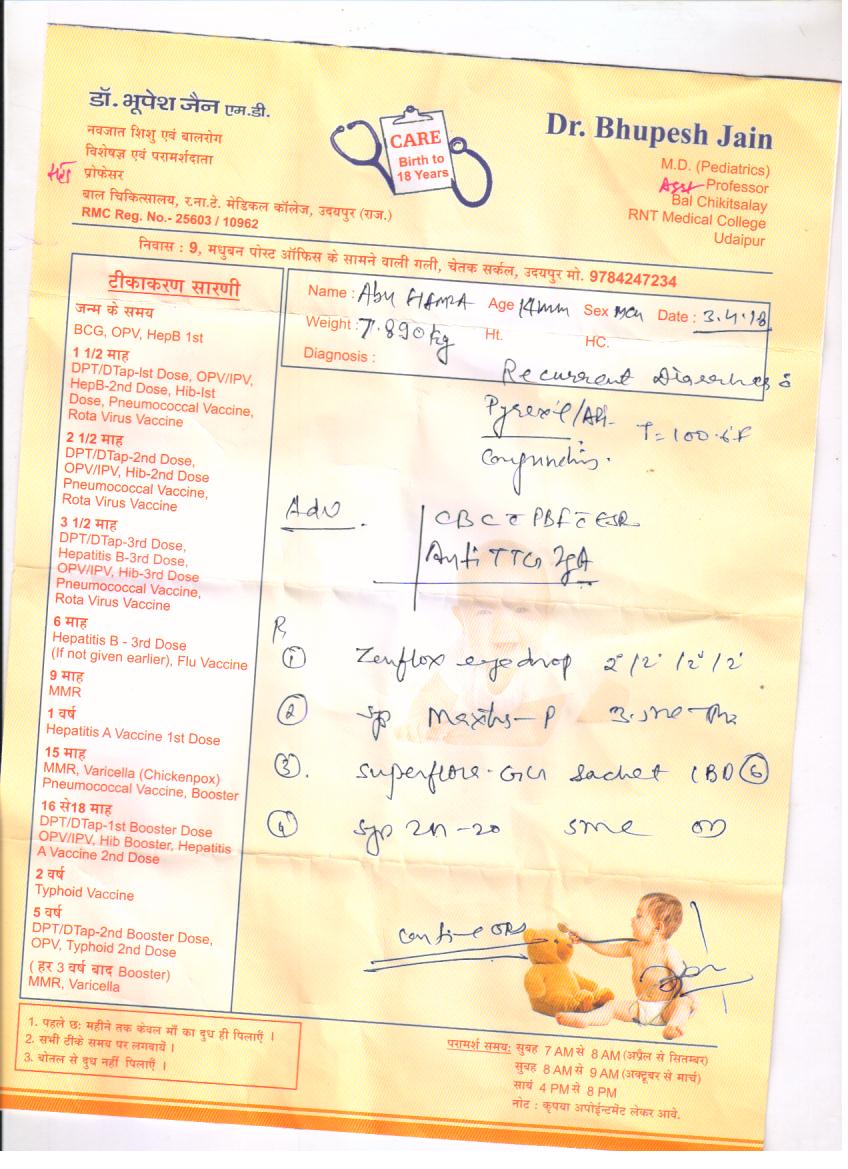 डॉ. भूपेश जैन एम.डी.
नवजात शिशु एवं बालरोग
विशेषज्ञ एवं परामर्शदाता
प्रोफेसर
बाल चिकित्सालय, र.ना.टे. मेडिकल कॉलेज, उदयपुर (राज.)
RMC Reg. No.- 25603 / 10962
CARE
Birth to
18 Years
Dr. Bhupesh Jain
M.D. (Pediatrics)
Asst Professor
Bal Chikitsalay
RNT Medical College
Udaipur
निवास : 9, मधुबन पोस्ट ऑफिस के सामने वाली गली, चेतक सर्कल, उदयपुर मो. 9784247234
टीकाकरण सारणी
जन्म के समय
BCG, OPV, HepB 1st
1 1/2 माह
DPT/DTap-Ist Dose, OPV/IPV,
HepB-2nd Dose, Hib-Ist
Dose, Pneumococcal Vaccine,
Rota Virus Vaccine
2 1/2 माह
DPT/DTap-2nd Dose,
OPV/IPV, Hib-2nd Dose
Pneumococcal Vaccine,
Rota Virus Vaccine
3 1/2 माह
DPT/DTap-3rd Dose,
Hepatitis B-3rd Dose,
OPV/IPV, Hib-3rd Dose
Pneumococcal Vaccine,
Rota Virus Vaccine
6 माह
Hepatitis B - 3rd Dose
(If not given earlier), Flu Vaccine
9 माह
MMR
1 वर्ष
Hepatitis A Vaccine 1st Dose
15 माह
MMR, Varicella (Chickenpox)
Pneumococcal Vaccine, Booster
16 से18 माह
DPT/DTap-1st Booster Dose
OPV/IPV, Hib Booster, Hepatitis
A Vaccine 2nd Dose
2 वर्ष
Typhoid Vaccine
5 वर्ष
DPT/DTap-2nd Booster Dose,
OPV, Typhoid 2nd Dose
( हर 3 वर्ष बाद Booster)
MMR, Varicella
Name : Abu HAMZA Age 14 Sex Date : 3.4.18
Weight : 7.890 kg Ht. HC.
Diagnosis :
Recurrent Diarrhea
T=100.6F
Adv
CBC c̄ PBF c̄ ESR
Anti TTG IgA
R
① Zenflox eyedrop
② syp P
③. Superflora-GG sachet 1BD ⑥
④ syp Zn-20 5ml OD
ORS
1. पहले छः महीने तक केवल माँ का दुध ही पिलाएँ ।
2. सभी टीके समय पर लगवायें ।
3. बोतल से दुध नहीं पिलाएँ ।
परामर्श समय: सुबह 7 AM से 8 AM (अप्रैल से सितम्बर)
सुबह 8 AM से 9 AM (अक्टूबर से मार्च)
सायं 4 PM से 8 PM
नोट : कृपया अपोईन्टमेंट लेकर आवे.